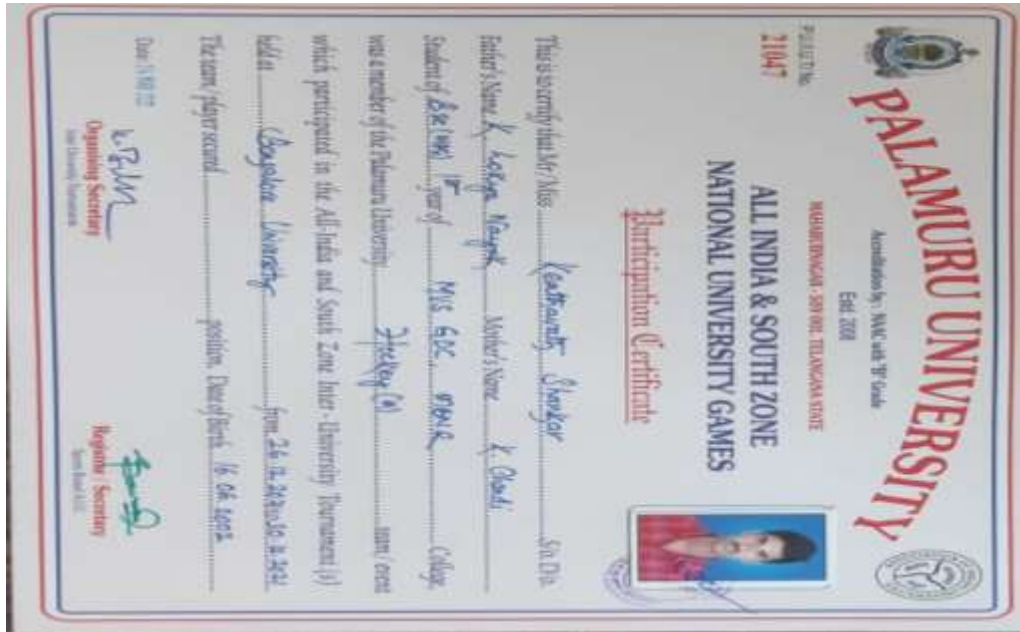 PALAMURU UNIVERSITY
Accreditation by : NAAC with "B" Grade
Estd. 2008
MAHABUBNAGAR - 509 001, TELANGANA STATE
21047
ALL INDIA & SOUTH ZONE
NATIONAL UNIVERSITY GAMES
Participation Certificate
This is to certify that Mr/Miss Keathavath Shankar S/o. D/o.
Father's Name K. Nayak Mother's Name K. Chandi
Student of year of MVS GDC College,
was a member of the Palamuru University Hockey team / event
which participated in the All-India and South Zone Inter - University Tournament (s)
held at Bangalore University from 26.12.2021
The team / player secured position, Date of Birth 16.06.2002
Date:
Organising Secretary
Inter University Tournaments
Registrar / Secretary